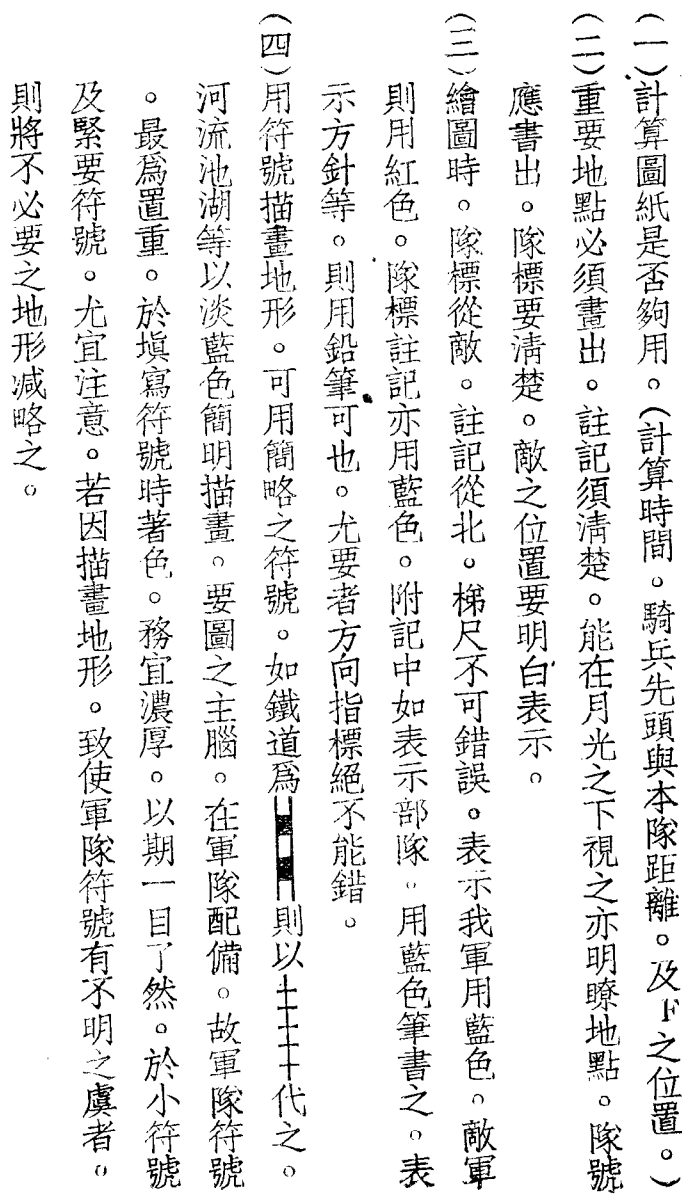 (一)計算圖紙是否夠用。(計算時間。騎兵先頭與本隊距離。及F之位置。)
(二)重要地點必須畫出。註記須淸楚。能在月光之下視之亦明瞭地點。隊號
應書出。隊標要淸楚。敵之位置要明白表示。
(三)繪圖時。隊標從敵。註記從北。梯尺不可錯誤。表示我軍用藍色。敵軍
則用紅色。隊標註記亦用藍色。附記中如表示部隊。用藍色筆書之。表
示方針等。則用鉛筆可也。尤要者方向指標絕不能錯。
(四)用符號描畫地形。可用簡略之符號。如鐵道爲則以代之。
河流池湖等以淡藍色簡明描畫。要圖之主腦。在軍隊配備。故軍隊符號
。最爲置重。於塡寫符號時著色。務宜濃厚。以期一目了然。於小符號
及緊要符號。尤宜注意。若因描畫地形。致使軍隊符號有不明之虞者。
則將不必要之地形减略之。